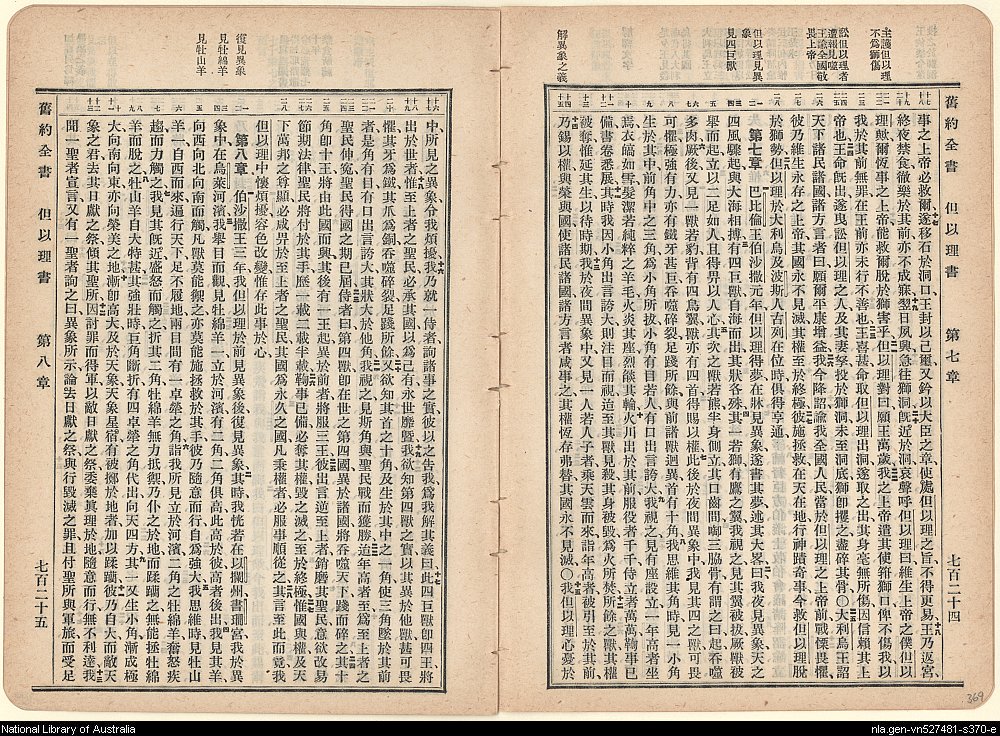 舊約全書 但以理書 第七章 七百二十四
主護但以理
不爲獅傷
訟但以理者
遭報見噬
王諭全國敬
畏上帝
但以理見異
象
見四巨獸
解異象之義
事之上帝必救爾遂移石於洞口王封以己璽又鈐以大臣之章使處但以理之旨不得更易王乃返宮
終夜禁食徹樂於其前亦不成寐翌日夙興急往獅洞旣近於洞哀聲呼但以理曰維生上帝之僕但以
理歟爾恆事之上帝能救爾脫於獅害乎但以理對曰願王萬歲我之上帝遣其使箝獅口俾不傷我以
我於其前無罪在王前亦未行不善也王喜甚命取但以理出洞遂取之出其身毫無所傷因信賴其上
帝也王命旣出遂曳訟但以理之人及其妻孥投於獅洞未至洞底獅卽攫之盡碎其骨〇大利烏王詔
天下諸民諸國諸方言者曰願爾平康增益我今降詔諭我全國人民當於但以理之上帝前戰慄畏懼
彼乃維生永存之上帝其國永不見滅其權至於終極彼施拯救在天在地行神蹟奇事今救但以理脫
於獅勢但以理於大利烏及波斯人古列在位時俱得亨通
第七章 巴比倫王伯沙撒元年但以理得夢在牀見異象遂書其夢述其大畧曰我夜間見異象天之
四風驟起與大海相搏有四巨獸自海而出其狀各殊其一若獅有鷹之翼我視之見其翼被拔厥獸被
舉而起立以二足如人且得畀以人心其次之獸若熊半身側立其口齒間啣三脇骨有謂之曰起吞噬
多肉厥後又見一獸若豹背有四鳥翼獸亦有四首得賜以權此後於夜間異象中我見其四之獸可畏
可懼極其強有力亦有鐵牙甚巨吞噬碎裂足踐所餘與前諸獸迥異首有十角我思維其角時見一小角
生於其中前角中之三角爲小角所拔小角有目若人有口出言誇大我視之見有座設立一年高者坐
焉衣皜如雪髮潔若純粹之羊毛火炎其座烈燄其輪火川出於其前服役者千千侍立者萬萬鞫事已
備書卷悉展其時我因小角出言誇大則注目而視迨至其獸見殺其身被毀爲火所焚所餘之獸其權
被奪惟延其生以待時期我於夜間異象中又見一人若人子者乘天雲而來詣年高者被引至於其前
乃錫以權與榮與國使諸民諸國諸方言者咸事之其權恆存弗替其國永不見滅〇我但以理心憂於
舊約全書 但以理書 第八章 七百二十五
復見異象
見牡綿羊
見牡山羊
中所見之異象令我煩擾我乃就一侍者詢諸事之實彼以之告我爲我解其義曰此四巨獸卽四王將
出於世者惟至上者之聖民必承其國以爲己有永世靡曁我欲知第四獸之實以其異於他獸甚可畏
懼其牙爲鐵其爪爲銅吞噬碎裂足踐所餘又欲知其首之十角及於其中之一角使三角墜於其前
者是角有目有口出言誇大其狀大於他角我視之見斯角與聖民戰而獲勝迨年高者至爲至上者之
聖民伸寃聖民得國之期已屆侍者曰第四獸卽在世之第四國異於諸國將吞噬天下踐而碎之其十
角卽十王將由此國而興其後有一王起異於前者將服三王彼出言逆至上者銷磨其聖民意欲改易
節期法律聖民將付於其手歷一載二載半載鞫事已備必奪其權毀之滅之至於終極惟國與權及天
下萬邦之尊顯必咸畀於至上者之聖民其國爲永久之國凡秉權者必服事順從之其言至此而竟我
但以理中懷煩擾容色改變惟存此事於心
第八章 伯沙撒王三年我但以理於前見異象後復見異象其時我恍若在以攔州書珊宮我於異
象中在烏萊河濱我舉目而觀見牡綿羊一立於河濱有二角二角俱高此高於彼高者後出我見其羊
向西向北向南而觸凡獸莫能禦之亦莫能施拯救於其手彼乃隨意而行自爲強大我思維時見牡山
羊一自西而來遍行天下足不履地兩目間有一卓犖之角詣我所見立於河濱二角之牡綿羊奮怒疾
趨而力觸之我見其旣近盛怒而觸之折其二角牡綿羊無力抵禦乃仆之於地而蹂躪之無能拯牡綿
羊而脫之牡山羊自大特甚其強壯時巨角斷折有四卓犖之角代出向天四方其一又生小角漸成極
大向南向東亦向榮美之地漸大及於天象天象星宿有被擲於地者加以蹂躪彼乃自大而敵天
象之君去其日獻之祭傾其聖所因討罪而得軍以敵日獻之祭委棄眞理於地隨意而行無不利達我
聞一聖者宣言又有一聖者詢之曰異象所示論去日獻之祭與行毀滅之罪且付聖所與軍旅而受足
369
National Library of Australia
nla.gen-vn527481-s370-e